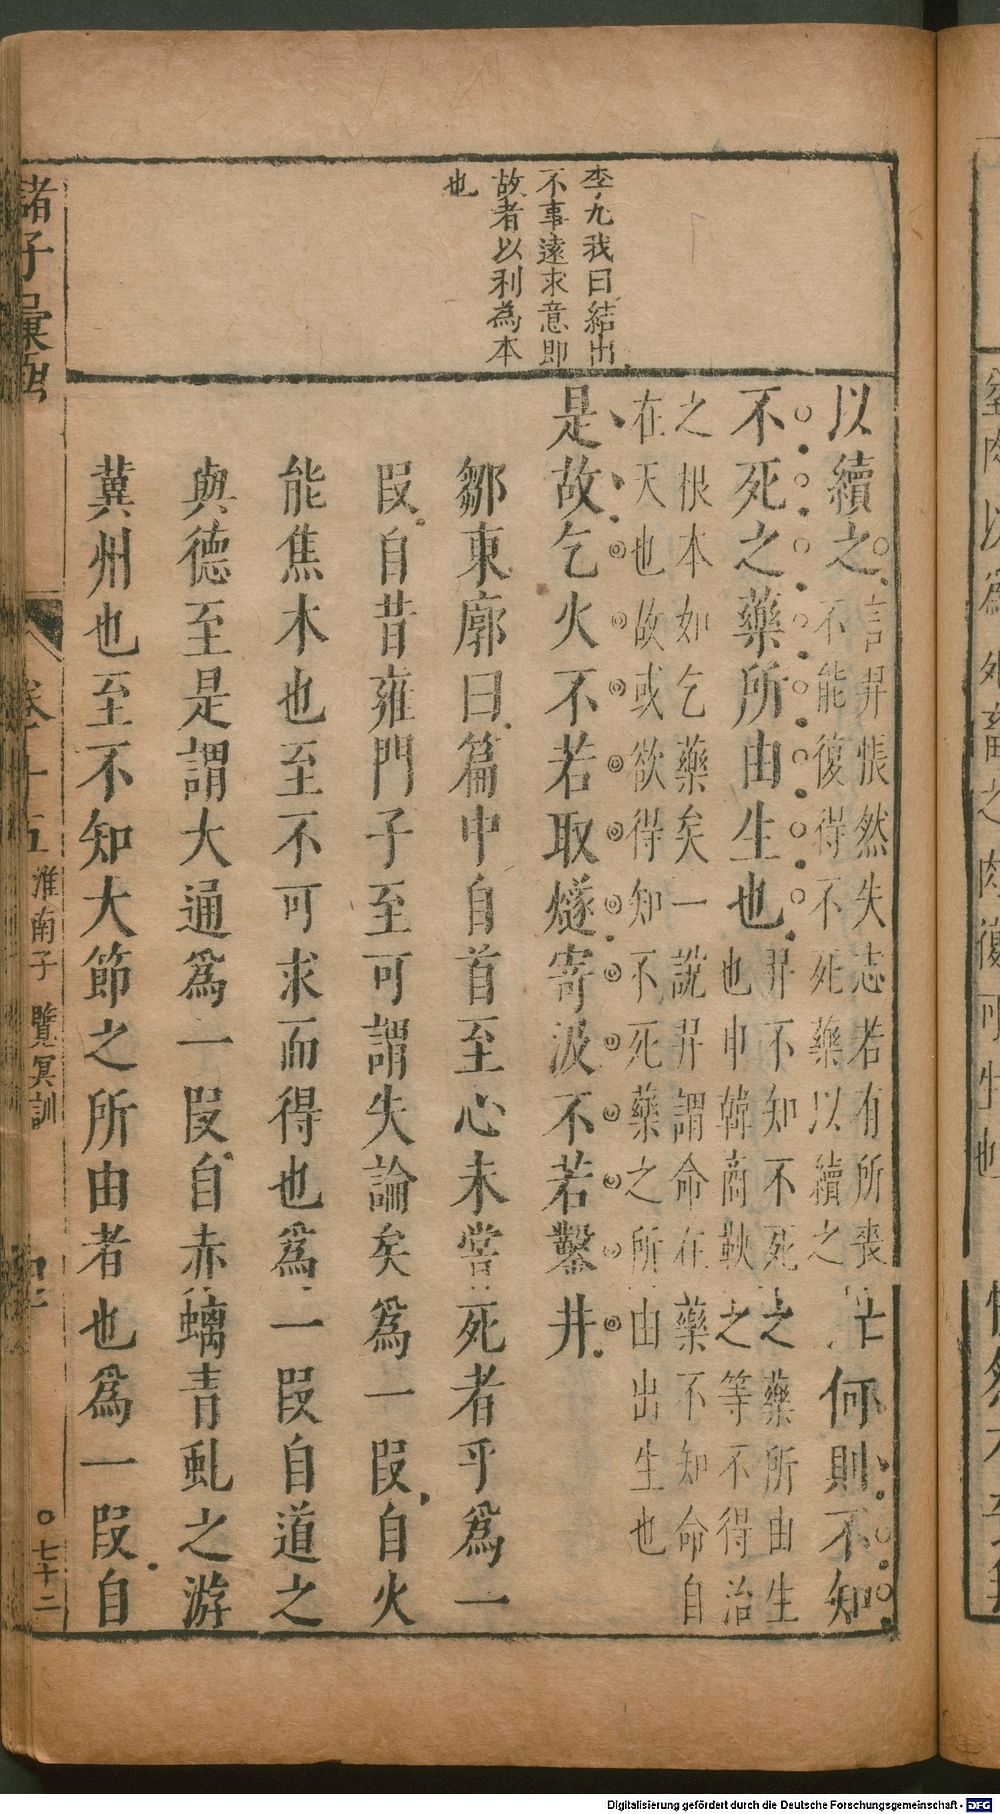 李九我曰結出
不事遠求意即
故者以利為本
也
以續之言羿悵然失志若有所喪
不能復得不死藥以續之何則不知
不死之藥所由生也羿不知不死之藥所由生
也申韓商鞅之等不得治
之根本如乞藥矣一說羿謂命在藥不知命自
在天也故或欲得知不死藥之所由出生也
是故乞火不若取燧寄汲不若鑿井
鄒東廓曰篇中自首至心未嘗死者乎爲一
叚自昔雍門子至可謂失論矣爲一叚自火
能焦木也至不可求而得也爲一叚自道之
與德至是謂大通爲一叚自赤螭青虬之游
冀州也至不知大節之所由者也爲一叚自
諸子彙函
卷十五
淮南子 覽冥訓
七十二
Digitalisierung gefördert durch die Deutsche Forschungsgemeinschaft - DFG